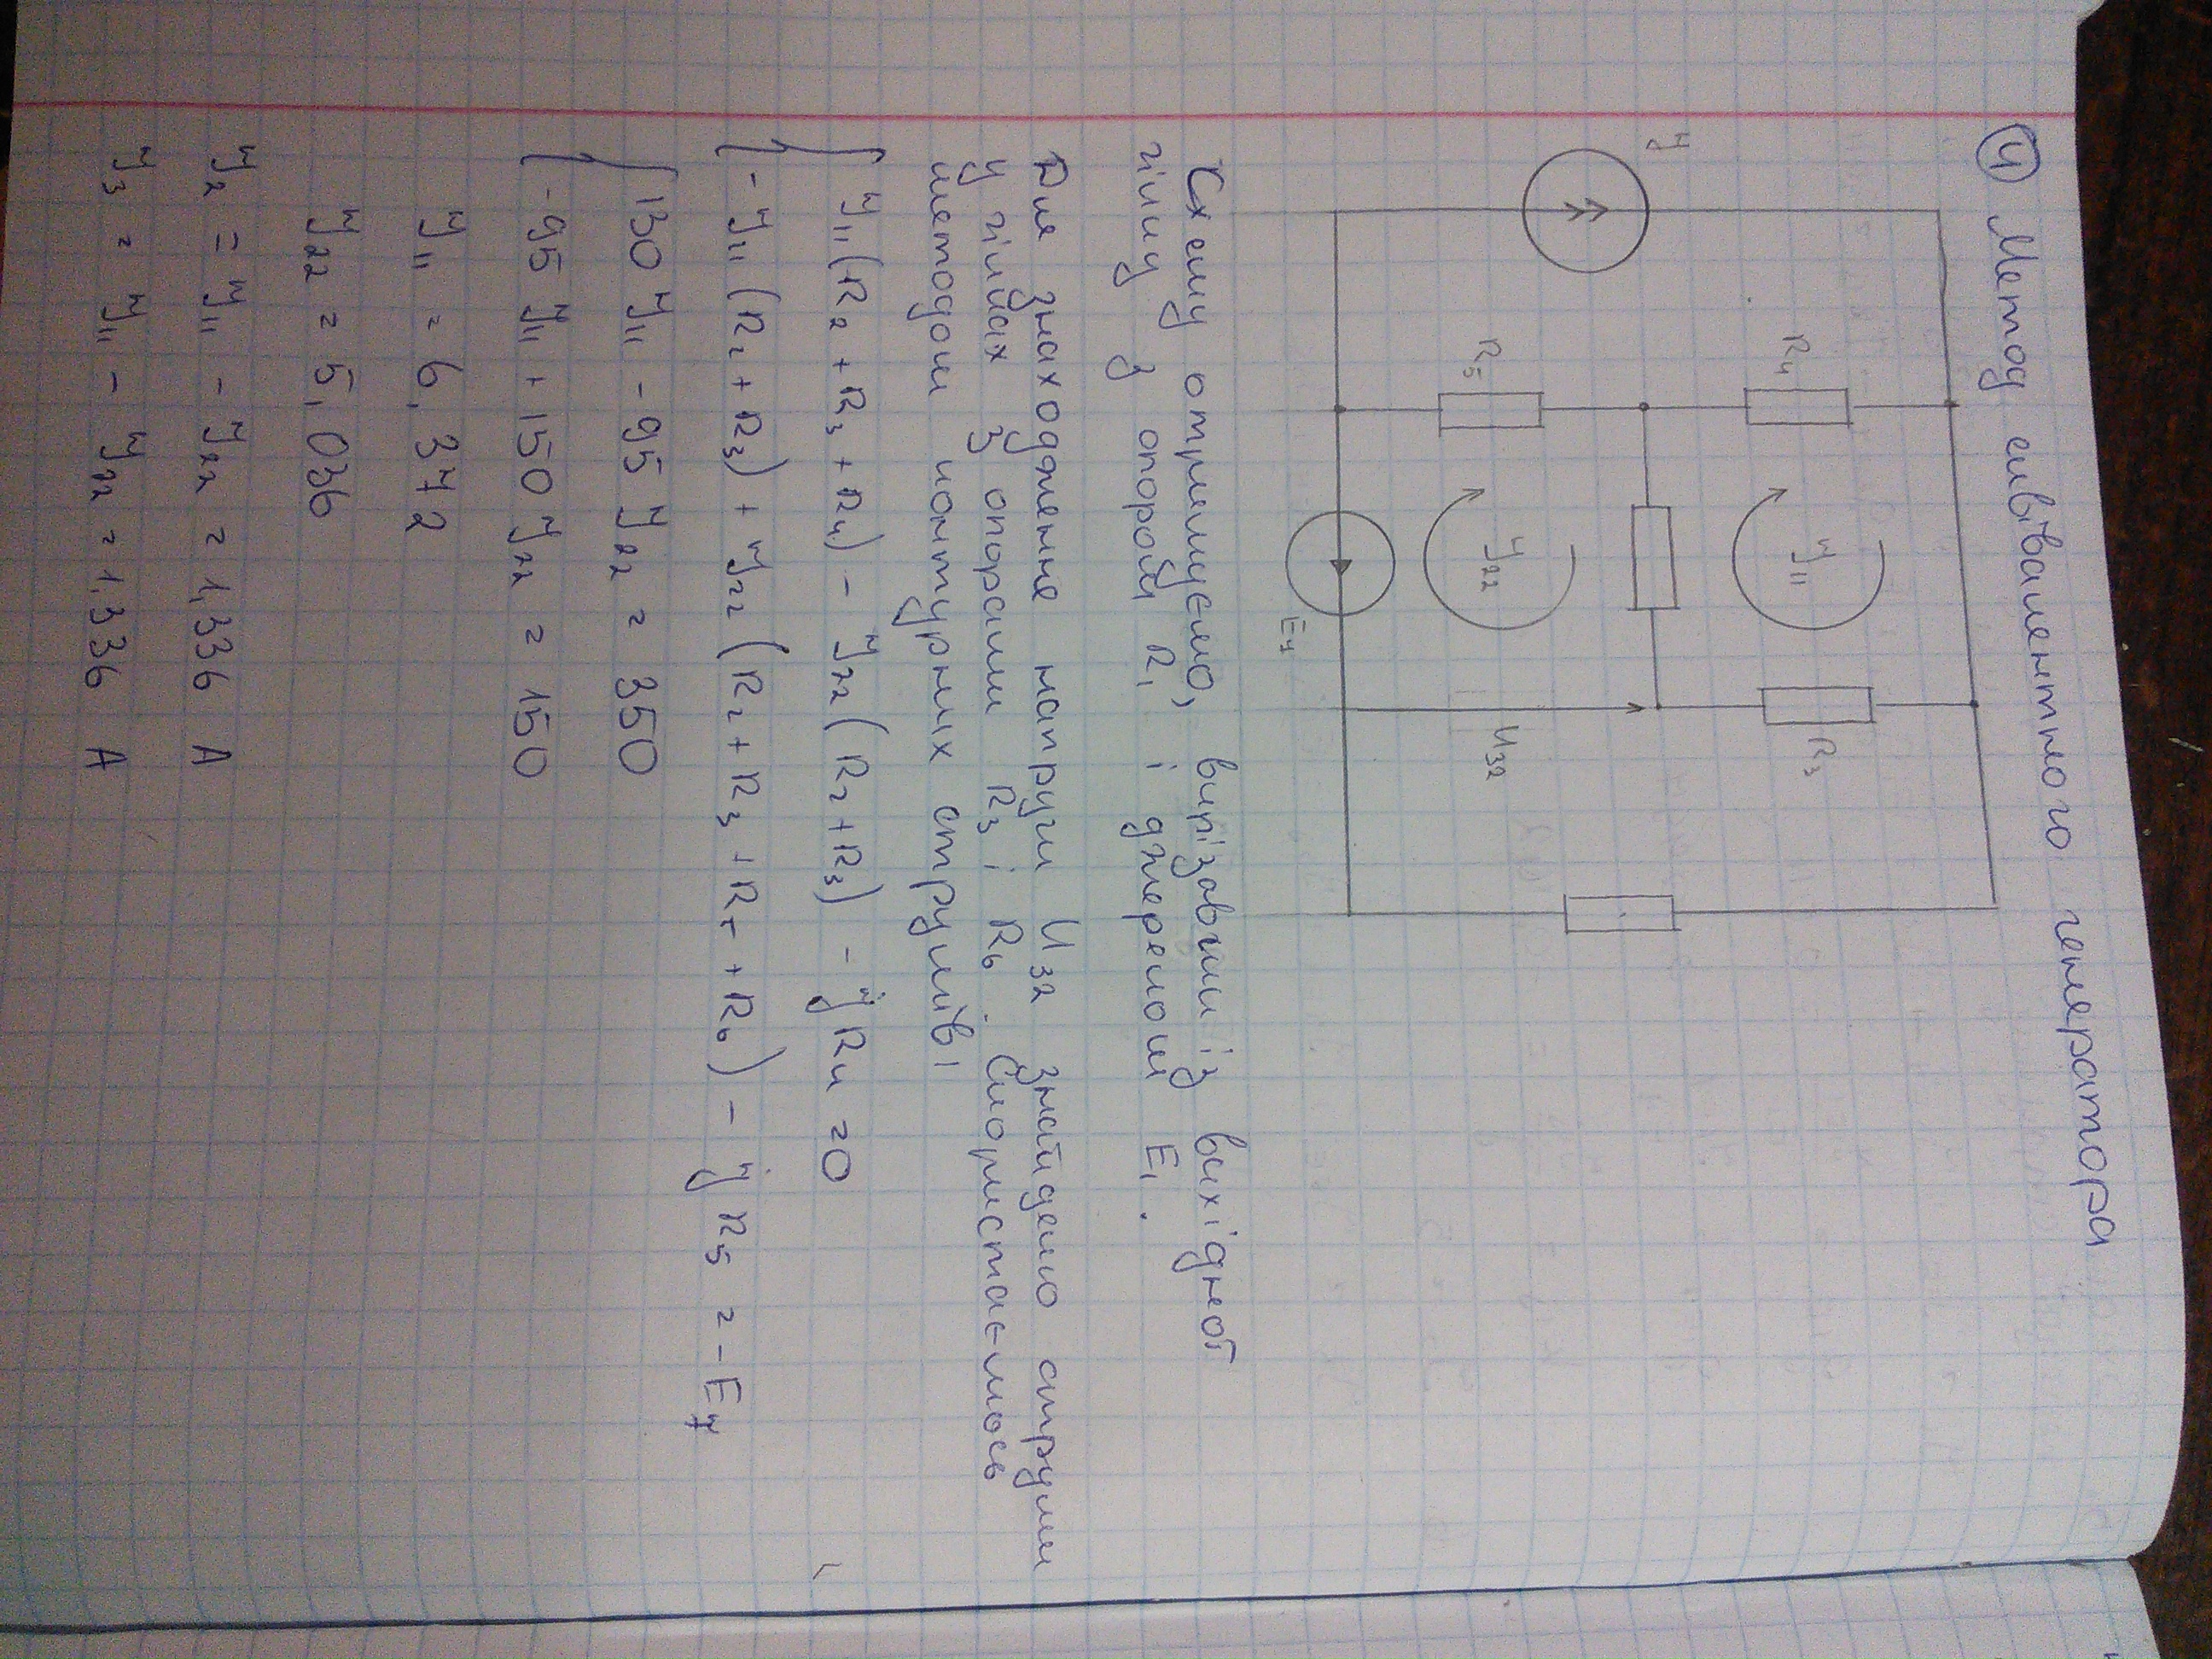 ④ Метод еквівалентного генератора
J
R4
R3
J11
R5
J22
Uзг
E4
Схему отримуємо, вирізавши із вихідної
гілку з опором R1 і джерелом E1.
Для знаходження напруги Uзг знайдемо струми
у гілках з опорами R3 і R6. Скористаємось
методом контурних струмів:
J11(R2 + R3 + R4) - J22(R2 + R3) - J R4 = 0
- J11(R2 + R3) + J22(R2 + R3 + R5 + R6) - J R5 = -E4
130 J11 - 95 J22 = 350
-95 J11 + 150 J22 = 150
J11 = 6,372
J22 = 5,036
J2 = J11 - J22 = 1,336 A
J3 = J11 - J22 = 1,336 A